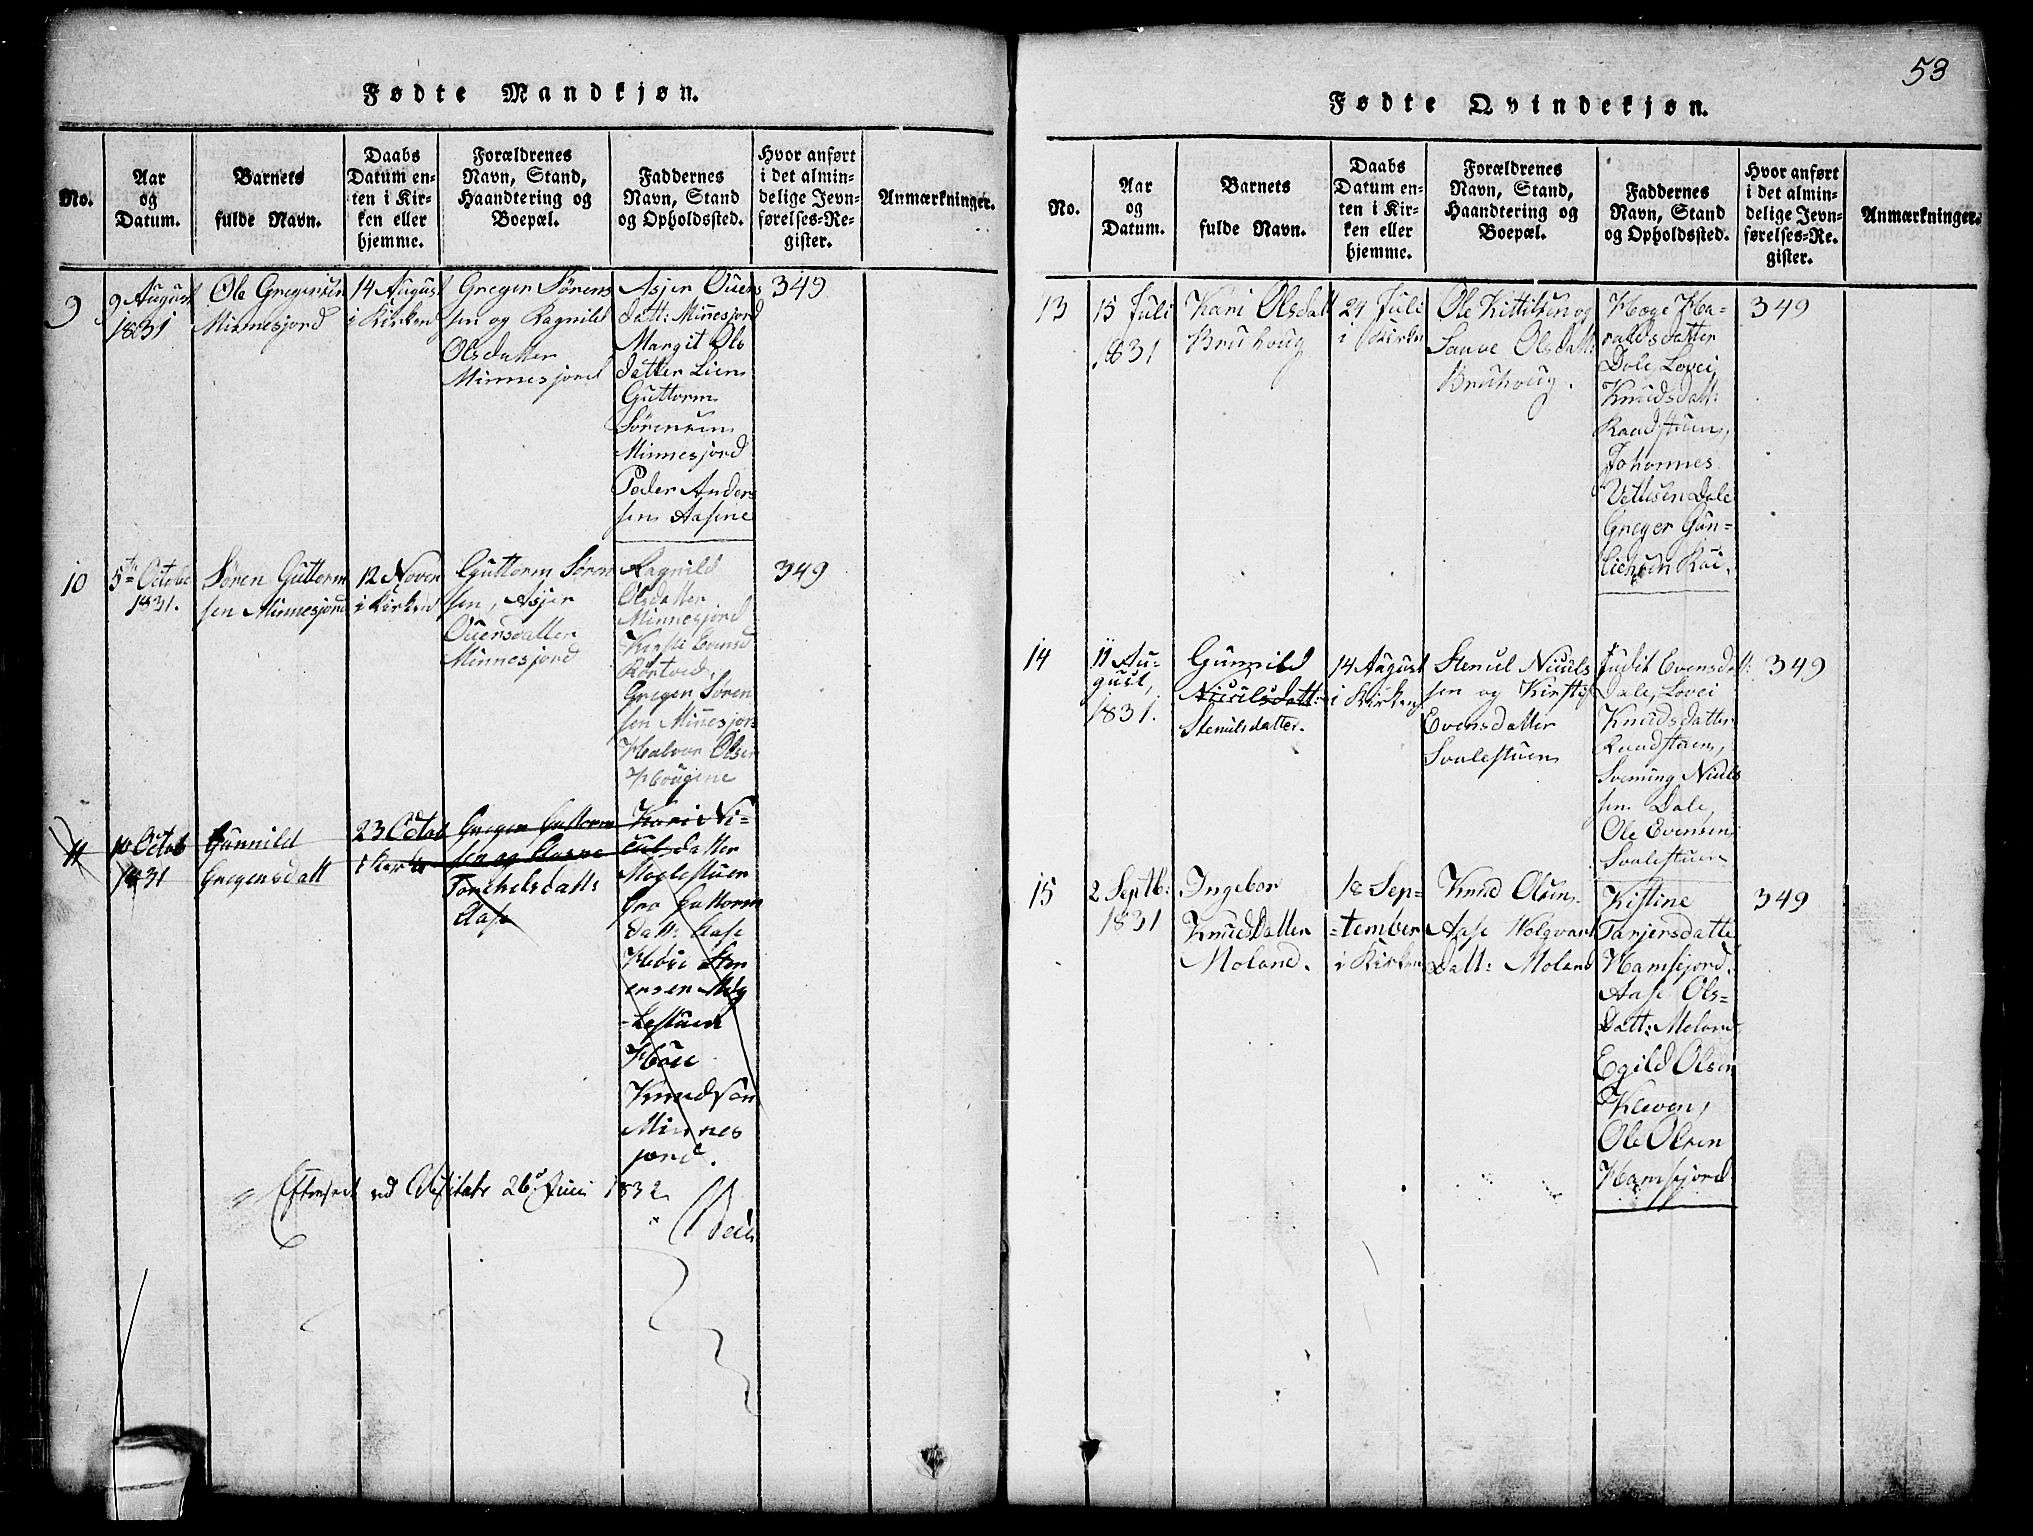 53
Fødte Mandkjøn.
No.
Aar
og
Datum.
Barnets
fulde Navn.
Daabs
Datum en-
ten i Kir-
ken eller
hjemme.
Forældrenes
Navn, Stand,
Haandtering og
Boepæl.
Faddernes
Navn, Stand
og Opholdssted.
Hvor anført
i det almin-
delige Jevn-
førelses-Re-
gister.
Anmærkninger.
9
9 August
1831
Ole Gregersen
Minnesjord
14 August
i Kirken
Greger Sørens
sen og Ragnild
Olsdatter
Minnesjord
Asjer Ouens
datt: Minesjord
Margit Ols
datter Lien
Guttorm
Sørensen
Minnesjord
Peder Anders
sen Aasene
349
10
5te Octobr
1831.
Søren Guttorm
sen Minnesjord
12 Nover
i Kirken
Guttorm Søren
sen, Asjer
Ouensdatter
Minnesjord
Ragnild
Olsdatter
Minnesjord
Kirsti Evensd
Greger Søren
sen Minnesjor
Halvor Olsen
Hougene
349
11
10 Octob
1831
Gunnild
Gregersdatt
23 Octob
i Kirke
Greger Guttorm
sen og Aasne
Torchelsdatt:
Aase
Kari Ni-
culsdatter
Moglestuen
Gro Guttorm
datt: Aase
Hoie
ensen Mog
-lestuen
Hoie
Knudson
Minnes
jord.
Efterseet ved Visitats 26d Juni 1832
Fødte Qvindekjøn.
No.
Aar
og
Datum.
Barnets
fulde Navn.
Daabs
Datum en-
ten i Kir-
ken eller
hjemme.
Forældrenes
Navn, Stand,
Haandtering og
Boepæl.
Faddernes
Navn, Stand
og Opholdssted.
Hvor anført
i det almin-
delige Jevn-
førelses-Re-
gister.
Anmærkninger.
13
15 Juli
1831
Kari Olsdatt
Bruhoug
24 Juli
i Kirken
Ole Kittilsen og
Saave Olsdatt:
Bruhoug.
Hæge Ha-
raldsdatter
Dale, Lovei
Knudsdatt:
Raudstuen,
Johannes
Vetlesen Dale
Greger Gun-
349
14
11 Au-
gust,
1831.
Gunnild
Niculsdatt:
Stenulsdatter.
14 August
i Kirken
Stenul Niculs
sen og Kirsti
Evensdatter
Svalestuen
Judit Evensdatt:
Dale, Lovei
Knudsdatter
Raudstuen,
Svenung Niculs
sen Dale,
Ole Evensen
Svalestuen
349
15
2 Septb:
1831
Ingebor
Knudsdatter
Moland.
18 Sep-
-tember
i Kirken
Knud Olsen.
Aase Holgvart
Datt: Moland
Kistine
Tarjersdatte
Hamsejord.
Aase Ols-
Datt: Moland
Egild Olsen
Kleven,
Ole Olsen
Hamsejord
349